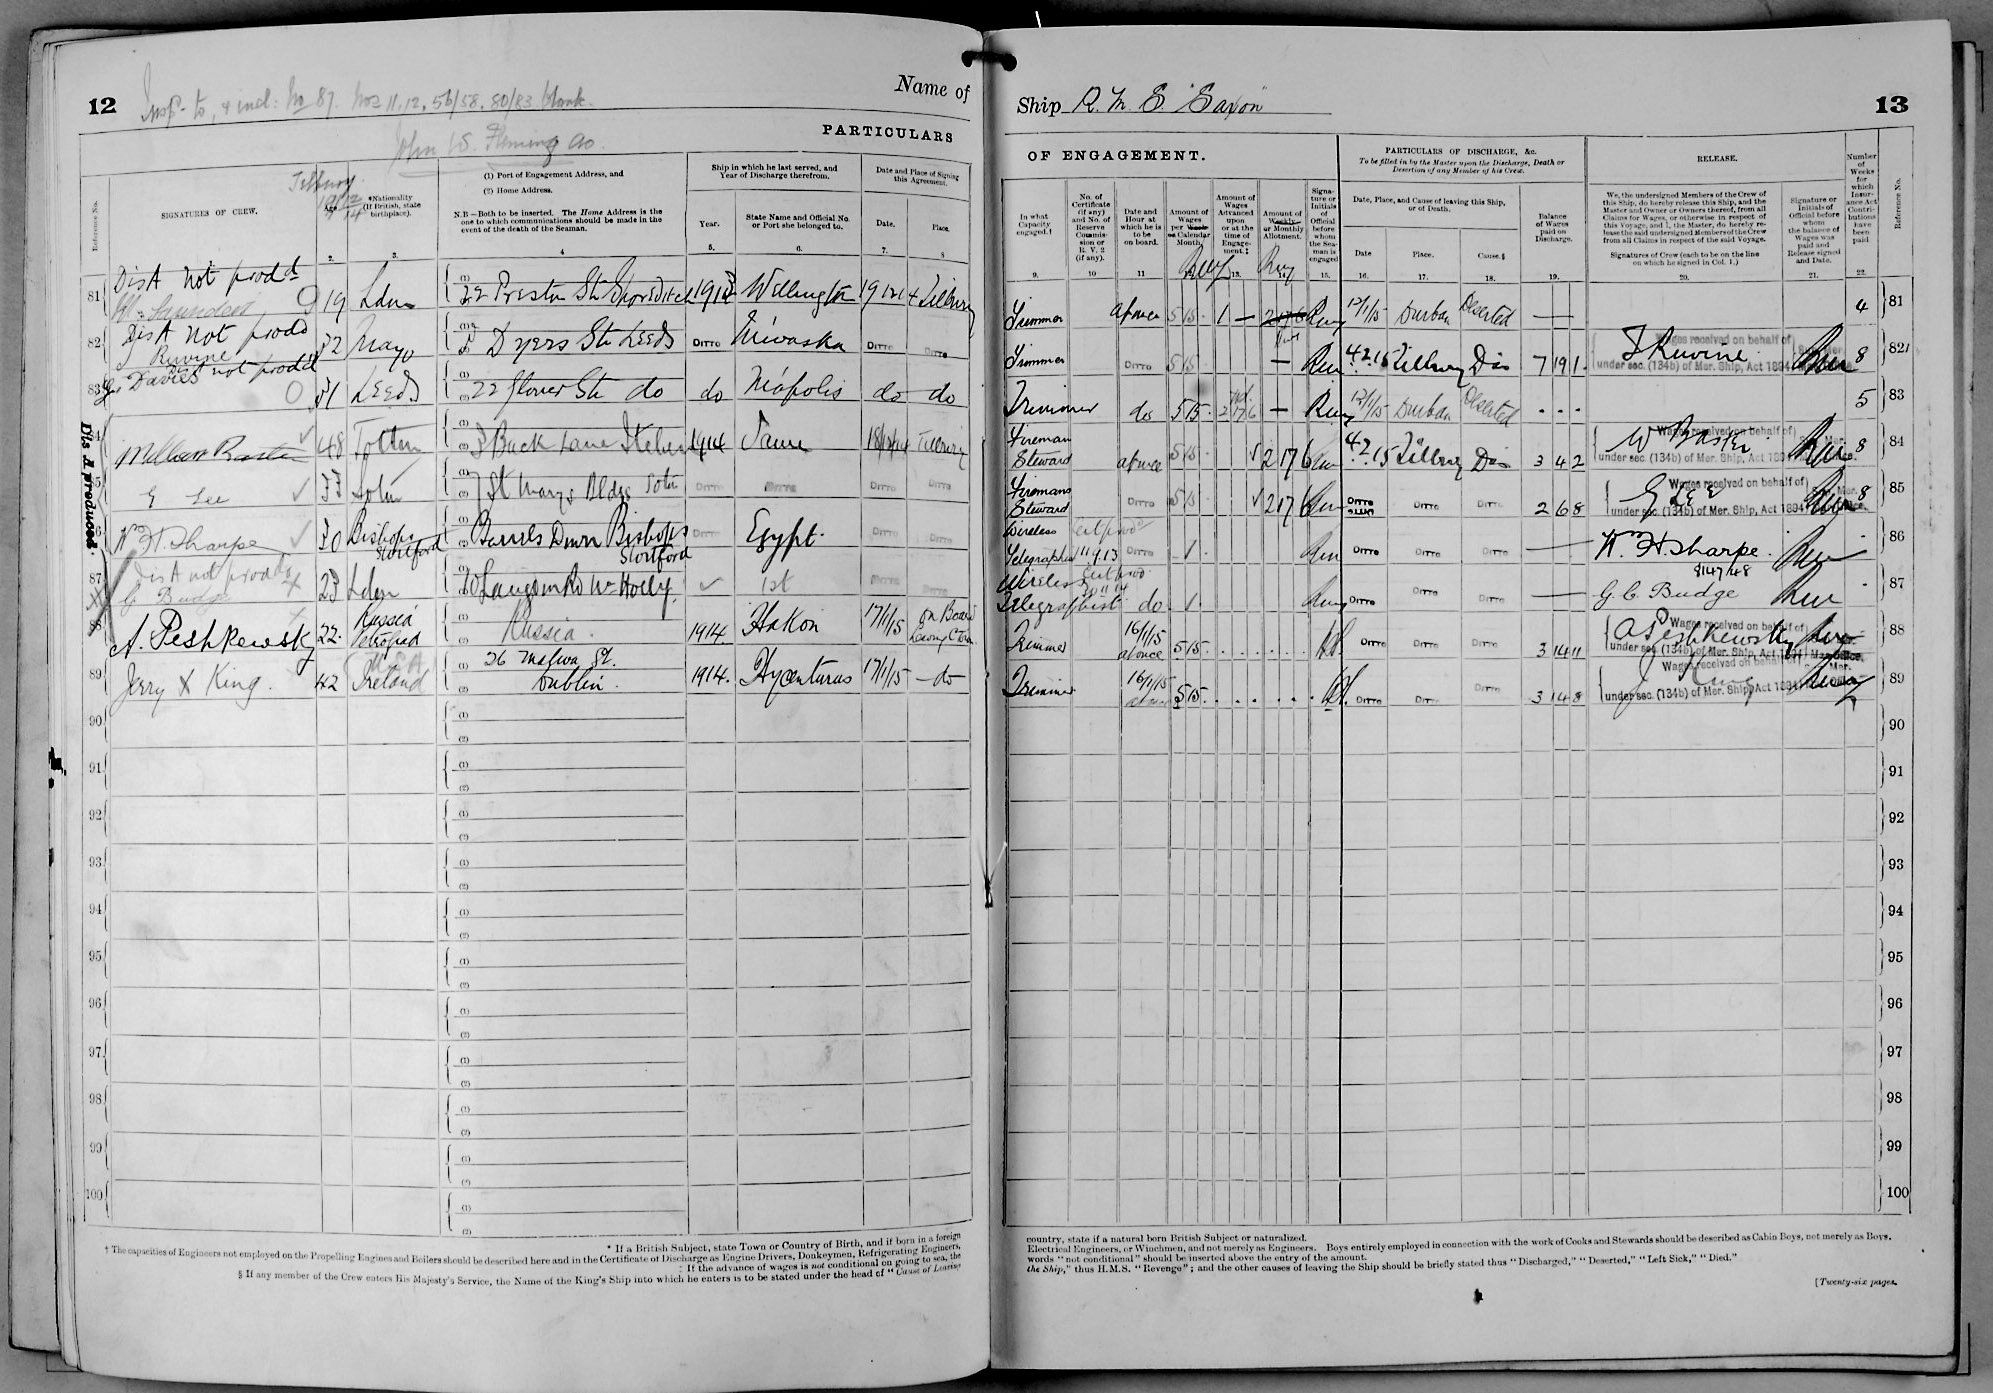 12
Name of
PARTICULARS
Tilbury
Reference No.
SIGNATURES OF CREW.
Age
*Nationality
(If British, state
birthplace).
(1) Port of Engagement Address, and
(2) Home Address.
N.B.—Both to be inserted. The Home Address is the
one to which communications should be made in the
event of the death of the Seaman.
Ship in which he last served, and
Year of Discharge therefrom.
Year.
State Name and Official No.
or Port she belonged to.
Date and Place of Signing
this Agreement.
Date.
Place.
2. 3. 4 5. 6. 7. 8
81 Dis A not prodd
19 Ldn 22 Preston St Shoreditch Wellington 19 12 14 Tilbury
82 Dis A not prodd
Ruvine 32 Mayo Dyers St Leeds DITTO DITTO DITTO
83 Davies not prodd
31 Leeds 22 Glover St do do do do
Dis. A produced.
William Baster 48 Totton Buck Lane 1914 Same Tilbury
G Lee 33 Soton St Marys Bldgs Soton DITTO DITTO DITTO DITTO
W H Sharpe 30 Bishops Stortford Barrels Down Bishops Stortford DITTO Egypt. DITTO DITTO
87 Dis A not prodd
G Budge 23 Ldn Wn Holly 1st DITTO DITTO
88 A. Peshkewsky 22. Russia Russia. 1914 Hakon 17/1/15 On Board
89 Jerry X King. 42 Ireland 26 St. Dublin. 1914. Hycenturus 17/1/15 — do
90
91
92
93
94
95
96
97
98
99
100
* If a British Subject, state Town or Country of Birth, and if born in a foreign
† The capacities of Engineers not employed on the Propelling Engines and Boilers should be described here and in the Certificate of Discharge as Engine Drivers, Donkeymen, Refrigerating Engineers,
‡ If the advance of wages is not conditional on going to sea, the
§ If any member of the Crew enters His Majesty's Service, the Name of the King's Ship into which he enters is to be stated under the head of "Cause of Leaving
Ship R. M. S. "Saxon"
13
OF ENGAGEMENT.
PARTICULARS OF DISCHARGE, &c.
To be filled in by the Master upon the Discharge, Death or
Desertion of any Member of his Crew.
RELEASE.
Number
of
Weeks
for
which
Insur-
ance Act
Contri-
butions
have
been
paid
Reference No.
In what
Capacity
engaged.†
No. of
Certificate
(if any)
and No. of
Reserve
Commis-
sion or
R. V. 2
(if any).
Date and
Hour at
which he is
to be
on board.
Amount of
Wages
per Week
or Calendar
Month.
Amount of
Wages
Advanced
upon
or at the
time of
Engage-
ment.‡
Amount of
Weekly
or Monthly
Allotment.
Signa-
ture or
Initials
of
Official
before
whom
the Sea-
man is
engaged
Date, Place, and Cause of leaving this Ship,
or of Death.
Date
Place.
Cause.§
Balance
of Wages
paid on
Discharge.
We, the undersigned Members of the Crew of
this Ship, do hereby release this Ship, and the
Master and Owner or Owners thereof, from all
Claims for Wages, or otherwise in respect of
this Voyage, and I, the Master, do hereby re-
lease the said undersigned Members of the Crew
from all Claims in respect of the said Voyage.
Signatures of Crew (each to be on the line
on which he signed in Col. 1.)
Signature or
Initials of
Official before
whom
the balance of
Wages was
paid and
Release signed
and Date.
9. 10 11 13. 15. 16. 17. 18. 19. 20. 21. 22.
Trimmer at once 5 15 1 — 12/1/15 Durban Deserted — 4 81
Trimmer DITTO 5 15 — 4.2.15 Tilbury Dis 7 19 1 Wages received on behalf of
under sec. (134b) of Mer. Ship. Act 1894 8 82
Trimmer do 5 15 2 17 6 — 12/1/15 Durban Deserted 5 83
Fireman Steward at once 5 15 2 17 6 4.2.15 Tilbury Dis 3 4 2 W Baster Wages received on behalf of
under sec. (134b) of Mer. Ship. Act 1894 8 84
Firemans Steward DITTO 5 15 2 17 6 DITTO DITTO DITTO 2 6 8 G Lee Wages received on behalf of
under sec. (134b) of Mer. Ship. Act 1894 8 85
Wireless Telegraphist 11 9 13 DITTO 1 DITTO DITTO DITTO — W. H Sharpe. 86
Wireless Telegraphist do 1 DITTO DITTO DITTO — G. C. Budge 87
Trimmer 16/1/15 at once 5 15 DITTO DITTO DITTO 3 14 11 A Peshkewsky Wages received on behalf of
under sec. (134b) of Mer. Ship. Act 1894 88
Trimmer 16/1/15 5 15 DITTO DITTO DITTO 3 14 8 J King Wages received on behalf of
under sec. (134b) of Mer. Ship. Act 1894 89
90
91
92
93
94
95
96
97
98
99
100
country, state if a natural born British Subject or naturalized.
Electrical Engineers, or Winchmen, and not merely as Engineers. Boys entirely employed in connection with the work of Cooks and Stewards should be described as Cabin Boys, not merely as Boys.
words "not conditional" should be inserted above the entry of the amount.
the Ship," thus H.M.S. "Revenge"; and the other causes of leaving the Ship should be briefly stated thus "Discharged," "Deserted," "Left Sick," "Died."
[Twenty-six pages.